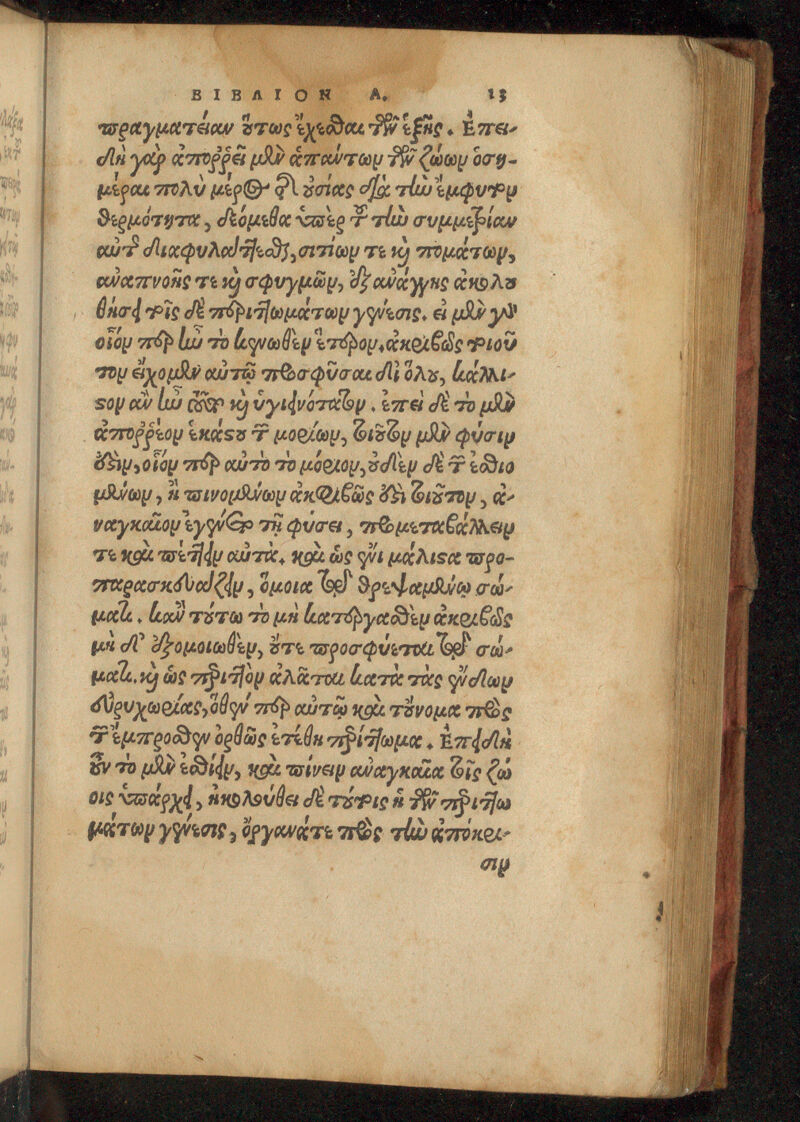 ΒΙΒΛΙΟΝ Α. 13
πραγματείαν οὕτως ἔχεσθαι τῶν ἑξῆς. Ἐπει-
δὴ γὰρ ἀπορρεῖ μὲν ἁπάντων τῶν ζώων ὁση-
μέραι πολὺ μέρος τῆς οὐσίας διὰ τὴν ἔμφυτον
θερμότητα, δεόμεθα ὑπὲρ τοῦ τὴν συμμετρίαν
αὐτῆς διαφυλάττεσθαι, σιτίων τε καὶ πομάτων,
ἀναπνοῆς τε καὶ σφυγμῶν, ἐξ ἀνάγκης ἀκολου
θήσει τοῖς δὲ περιττωμάτων γένεσις. εἰ μὲν γὰρ
οἷόν περ ἦν τὸ κενωθὲν ἕτερον, ἀκριβῶς τοιοῦ
τον εἴχομεν αὐτῷ προσφῦσαι δι' ὅλου, κάλλι-
στον ἂν ἦν οὕτω καὶ ὑγιεινότατον. ἐπεὶ δὲ τὸ μὲν
ἀπορρέον ἑκάστου τῶν μορίων, τοιοῦτον μὲν φύσιν
ἐστὶν, οἷόν περ αὐτὸ τὸ μόριον, οὐδὲν δὲ τῶν ἐσθιο
μένων, ἢ πινομένων ἀκριβῶς ἐστὶ τοιοῦτον, ἀ-
ναγκαῖον ἐγένετο τῇ φύσει, προμεταβάλλειν
τε καὶ πέττειν αὐτὰ, καὶ ὡς ἔνι μάλιστα προ-
παρασκευάζειν, ὅμοια τῷ θρεψαμένῳ σώ-
ματι. κἀν τούτῳ τὸ μὴ κατεργασθὲν ἀκριβῶς
μὴ δ' ἐξομοιωθὲν, οὔτε προσφύεται τῷ σώ-
ματι, καὶ ὡς περιττὸν ἀλᾶται κατὰ τὰς ἔνδον
εὐρυχωρίας, ὅθεν περ αὐτῷ καὶ τοὔνομα πρὸς
τῶν ἔμπροσθεν ὀρθῶς ἐτέθη περίττωμα. Ἐπειδὴ
οὖν τὸ μὲν ἐσθίειν, καὶ πίνειν ἀναγκαῖα τοῖς ζώ
οις ὑπάρχει, ἠκολούθει δὲ τούτοις ἡ τῶν περιττω
μάτων γένεσις, ὄργανά τε πρὸς τὴν ἀπόκρι-
σιν